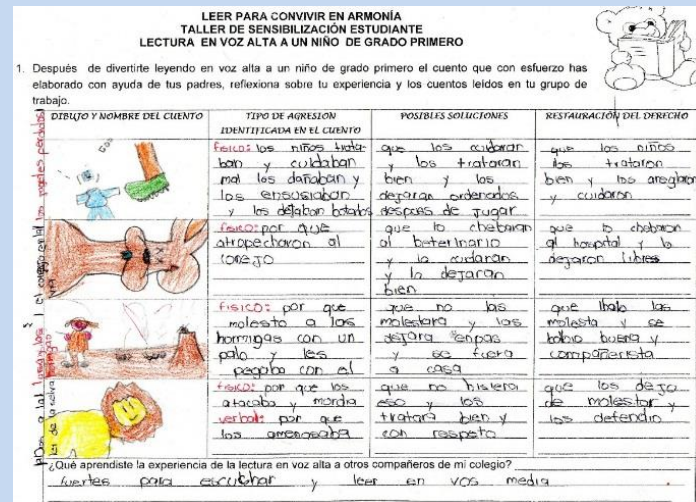 LEER PARA CONVIVIR EN ARMONÍA
TALLER DE SENSIBILIZACIÓN ESTUDIANTE
LECTURA EN VOZ ALTA A UN NIÑO DE GRADO PRIMERO
1. Después de divertirte leyendo en voz alta a un niño de grado primero el cuento que con esfuerzo has
elaborado con ayuda de tus padres, reflexiona sobre tu experiencia y los cuentos leídos en tu grupo de
trabajo.
DIBUJO Y NOMBRE DEL CUENTO
TIPO DE AGRESION
IDENTIFICADA EN EL CUENTO
POSIBLES SOLUCIONES
RESTAURACIÓN DEL DERECHO
los padres perdidos
fisico: los niños trata-
ban y cuidaban
mal los dañaban y
los ensusiaban
y los dejaban botados
que los cuidaran
y los trataran
bien y los
dejaran ordenados
despues de jugar
que los niños
los trataron
bien y los arreglaron
y cuidaron
el conejo en la
fisico: por que
atropecharon al
conejo
que lo chebaran
al beterinario
y lo cuidaran
y lo dejaran
bien
que lo chebaron
al hospital y lo
dejaron libres
fisico: por que
molesto a las
hormigas con un
palo y les
pegaba con el
que no las
molestara y las
dejara enpas
y se fuera
a casa
molesta y se
bolbio buena y
compañerista
de la selva
fisico: por que los
atacaba y mordia
verbal: por que
los amenasaba
que no hisiera
eso y los
tratara bien y
con respeto
que los dejo
de molestar y
los defendio
¿Qué aprendiste la experiencia de la lectura en voz alta a otros compañeros de mi colegio?
fuertes para escuchar y leer en vos media